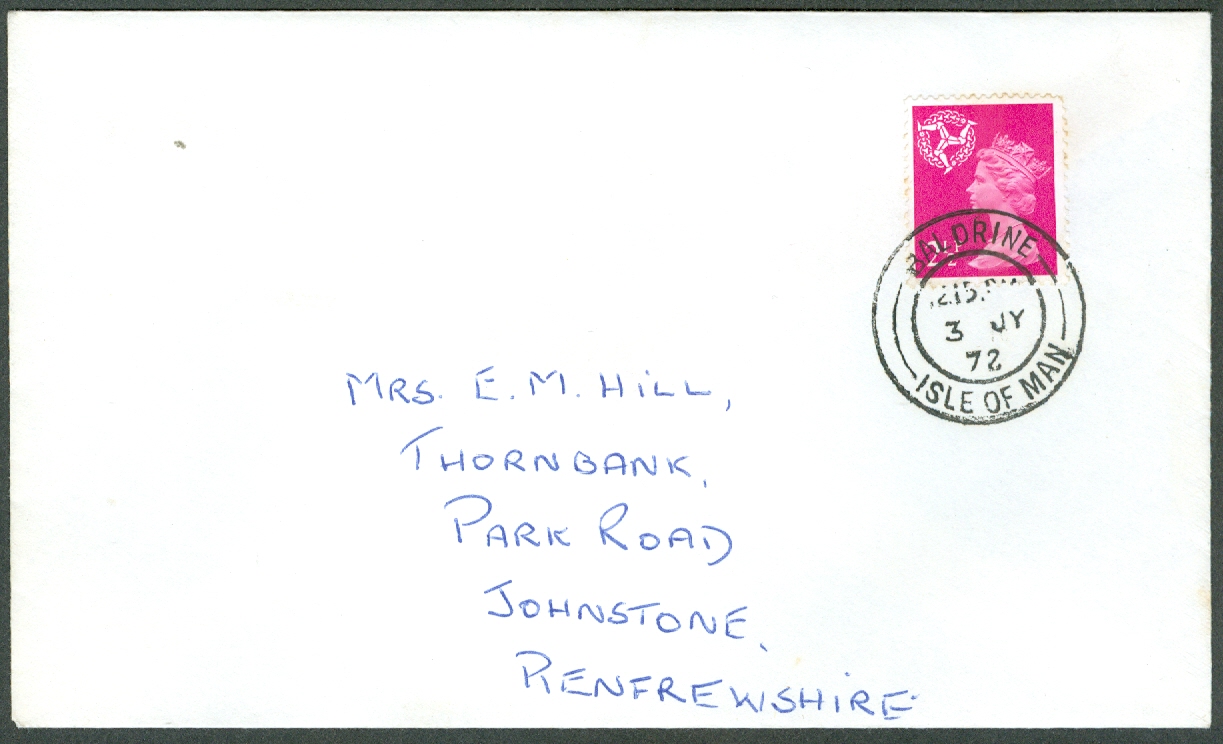 2½
BALDRINE
3 JY
72
ISLE OF MAN
MRS. E. M. HILL,
THORNBANK,
PARK ROAD
JOHNSTONE,
RENFREWSHIRE